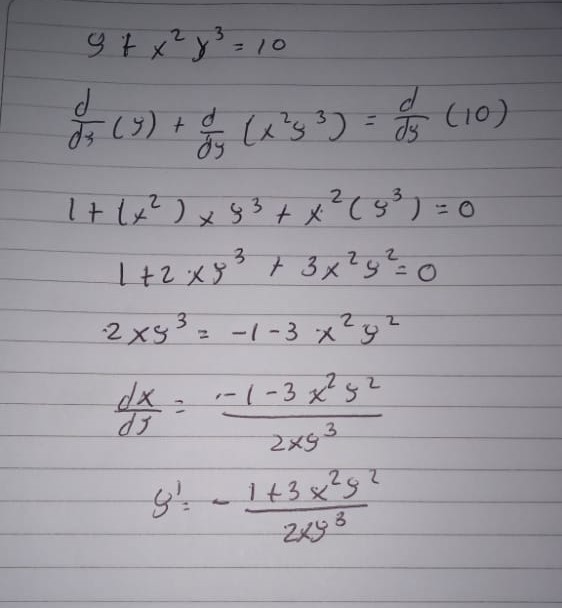 y + x² y³ = 10
d/dy (y) + d/dy (x²y³) = d/dy (10)
1 + (x²) x y³ + x² (y³) = 0
1 + 2xy³ + 3x²y² = 0
2xy³ = -1 - 3x²y²
dx/dy = -1 - 3x²y² / 2xy³
y' = - 1 + 3x²y² / 2xy³